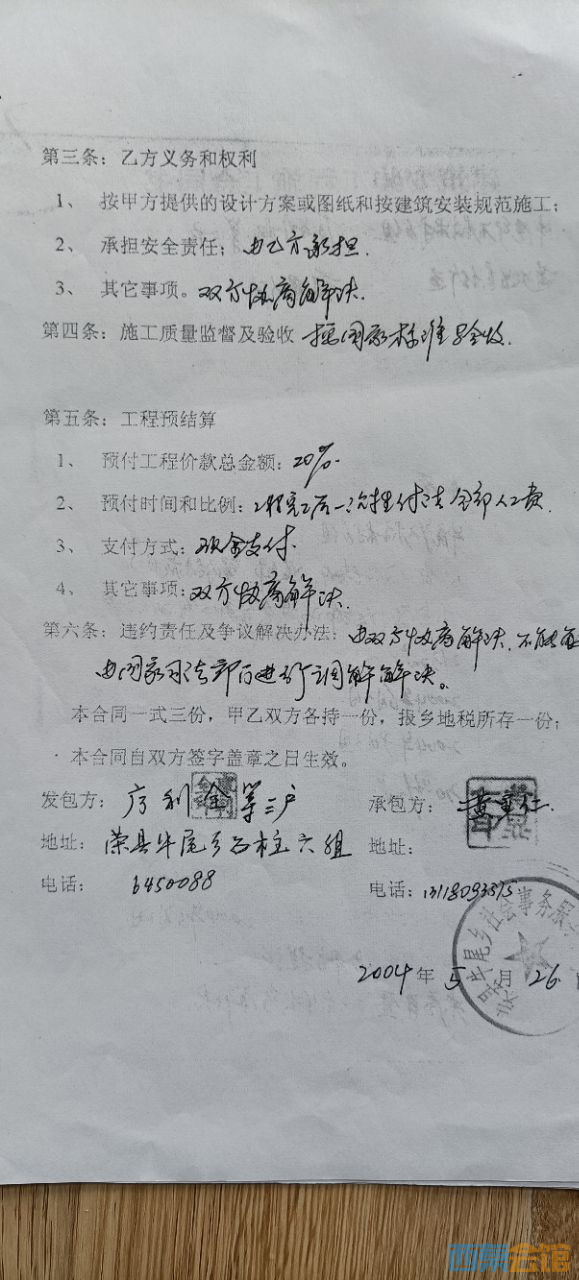 第三条：乙方义务和权利
1、 按甲方提供的设计方案或图纸和按建筑安装规范施工；
2、 承担安全责任；由乙方承担.
3、 其它事项。双方协商解决.
第四条：施工质量监督及验收 按国家标准验收.
第五条：工程预结算
1、 预付工程价款总金额：20%.
2、 预付时间和比例：工程完工后一次性付清全部人工费.
3、 支付方式：现金支付.
4、 其它事项：双方协商解决.
第六条：违约责任及争议解决办法：由双方协商解决.不能
由国家司法部门进行调解解决。
本合同一式三份，甲乙双方各持一份，报乡地税所存一份；
本合同自双方签字盖章之日生效。
发包方： 利金等三户 承包方：
地址： 荣县牛尾乡石柱六组 地址：
电话： 6450088 电话：
牛尾乡社会事务服
2004年 5 月 26
西祠会馆